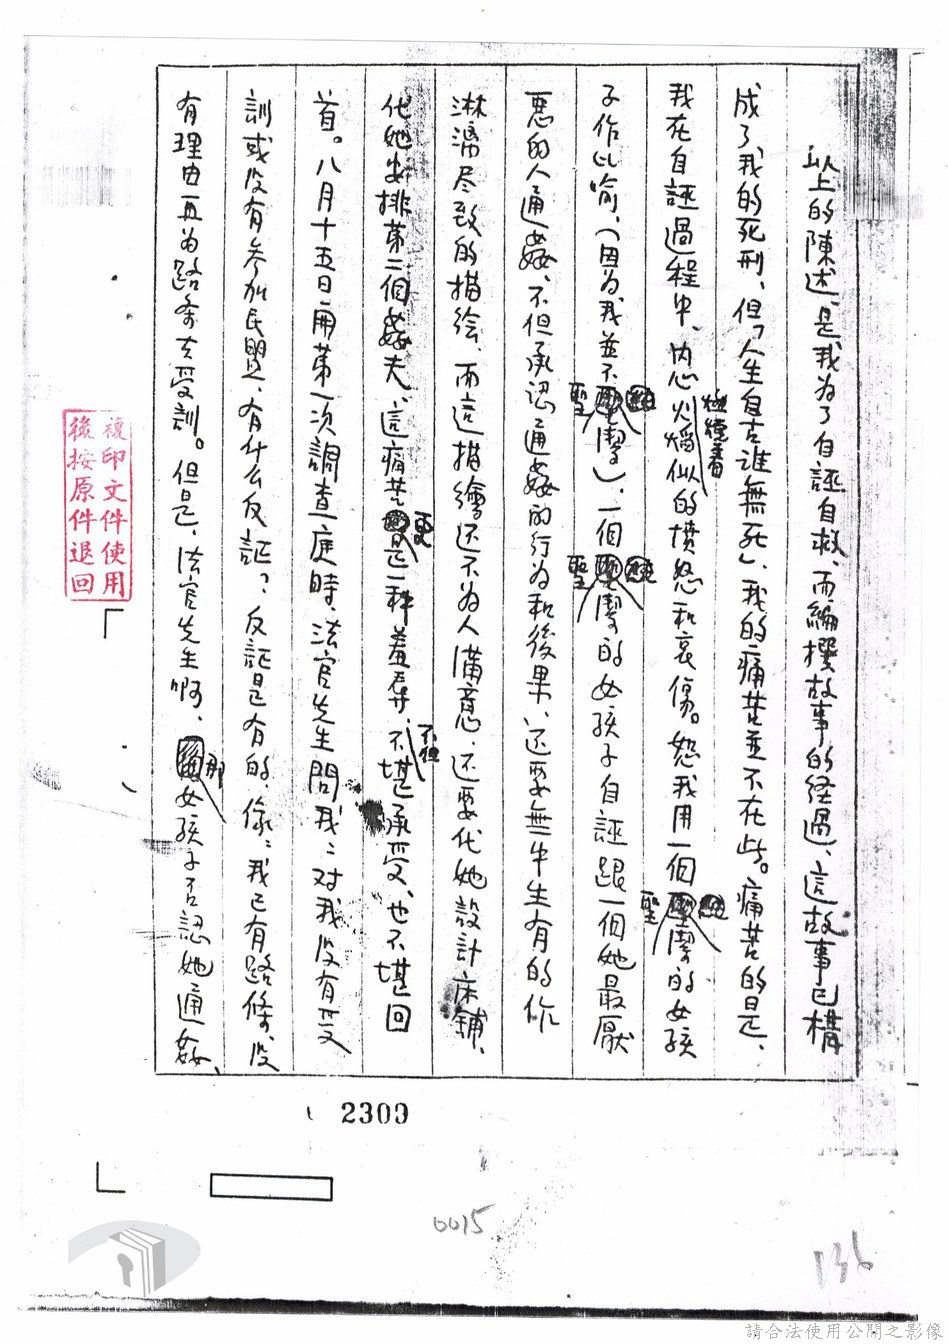 以上的陳述、是我為了自誣自救、而編撰故事的经過、這故事已構
成了我的死刑、但「人生自古誰無死」、我的痛苦並不在此。痛苦的是、
我在自誣過程中、内心燃燒着火燄似的憤怒和哀傷。恕我用一個聖潔的女孩
子作比喻、(因为我並不聖潔)、一個聖潔的女孩子自誣跟一個她最厭
惡的人通姦、不但承認通姦的行为和後果、还要無中生有的作
淋漓尽致的描绘、而這描繪还不为人满意、还要代她設計床鋪、
代她安排第二個姦夫、這痛苦更是一种羞辱、不但不堪承受、也不堪回
首。八月十五日開第一次調查庭時、法官先生問我：对我没有受
訓或没有参加民盟、有什么反証？、反証是有的、像：我已有路條、没
有理由再为路条去受訓。但是、法官先生啊、那女孩子否認她通姦、
複印文件使用
後按原件退回
2309
0015
136
請合法使用公開之影像